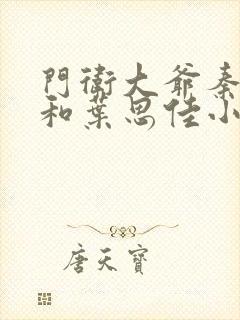 門衛大爺秦
和葉思佳小
唐天寶